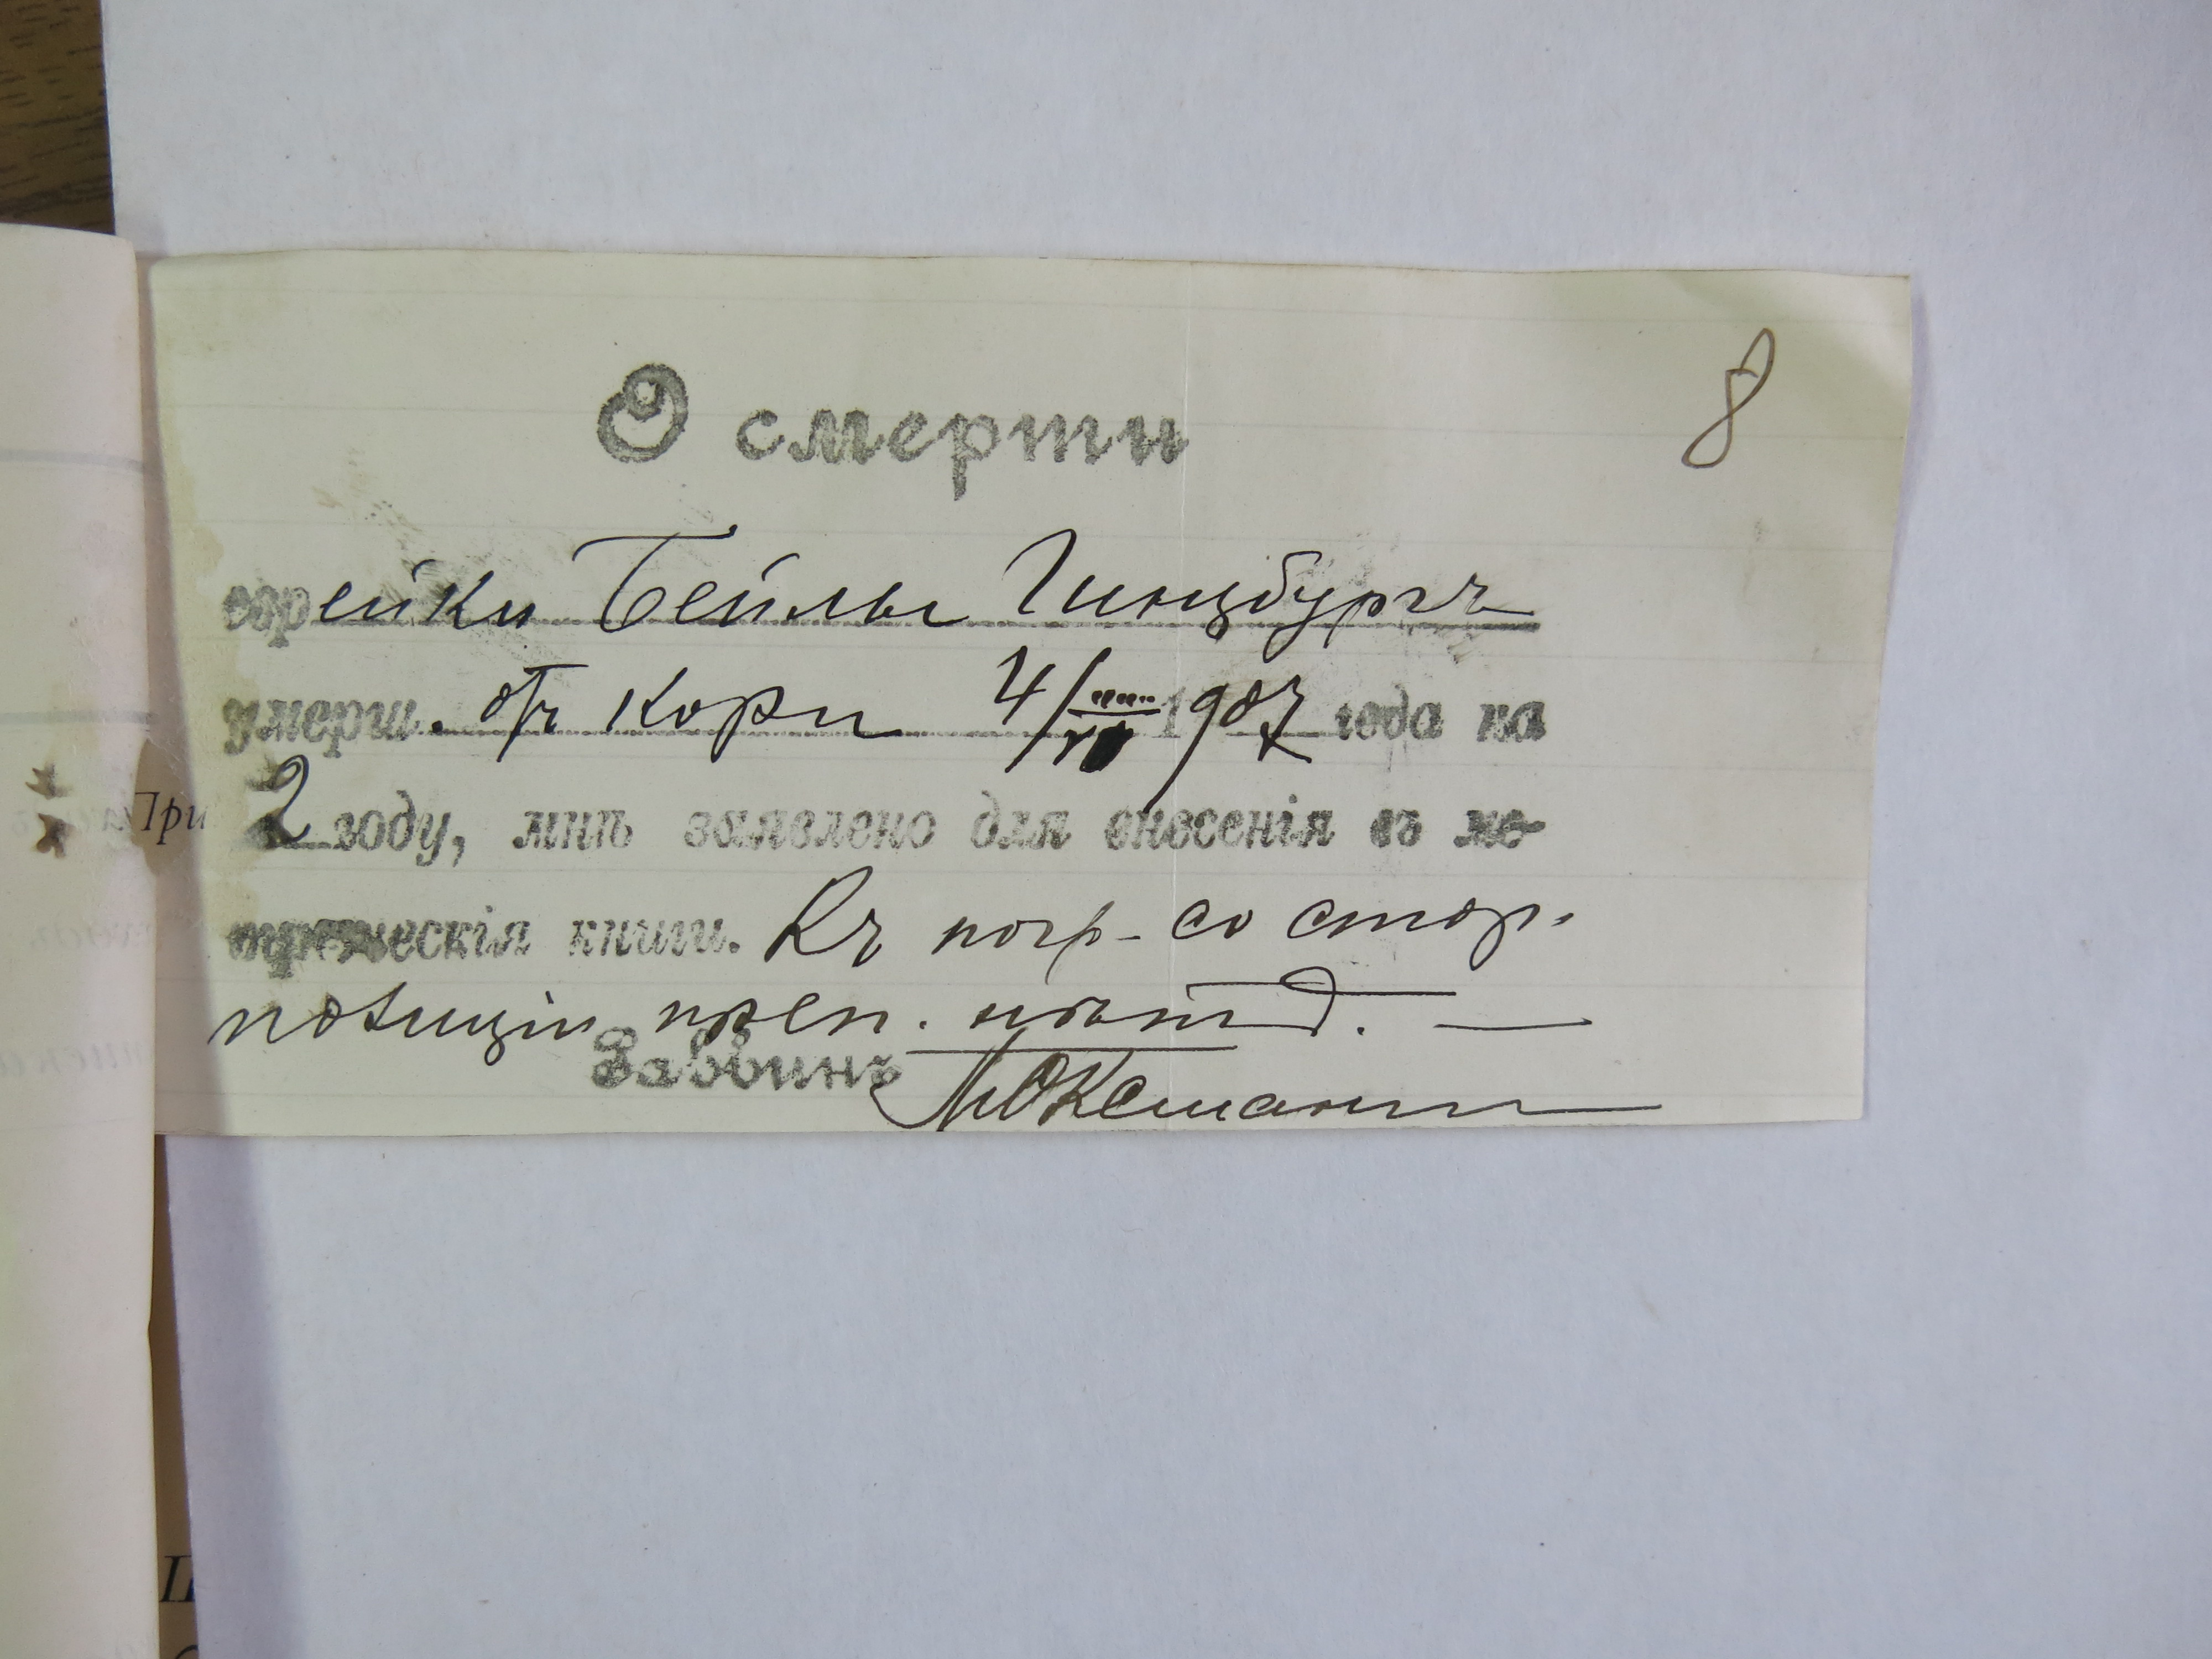 8
О смерти
еврейки Бейлы Гинцбургъ
умерш. отъ кори 4/ 1907 года на
При
2 году, мнѣ заявлено для внесенія въ ме-
трическія книги. Къ погр. со стор.
полиціи преп. нѣтъ.
Раввинъ